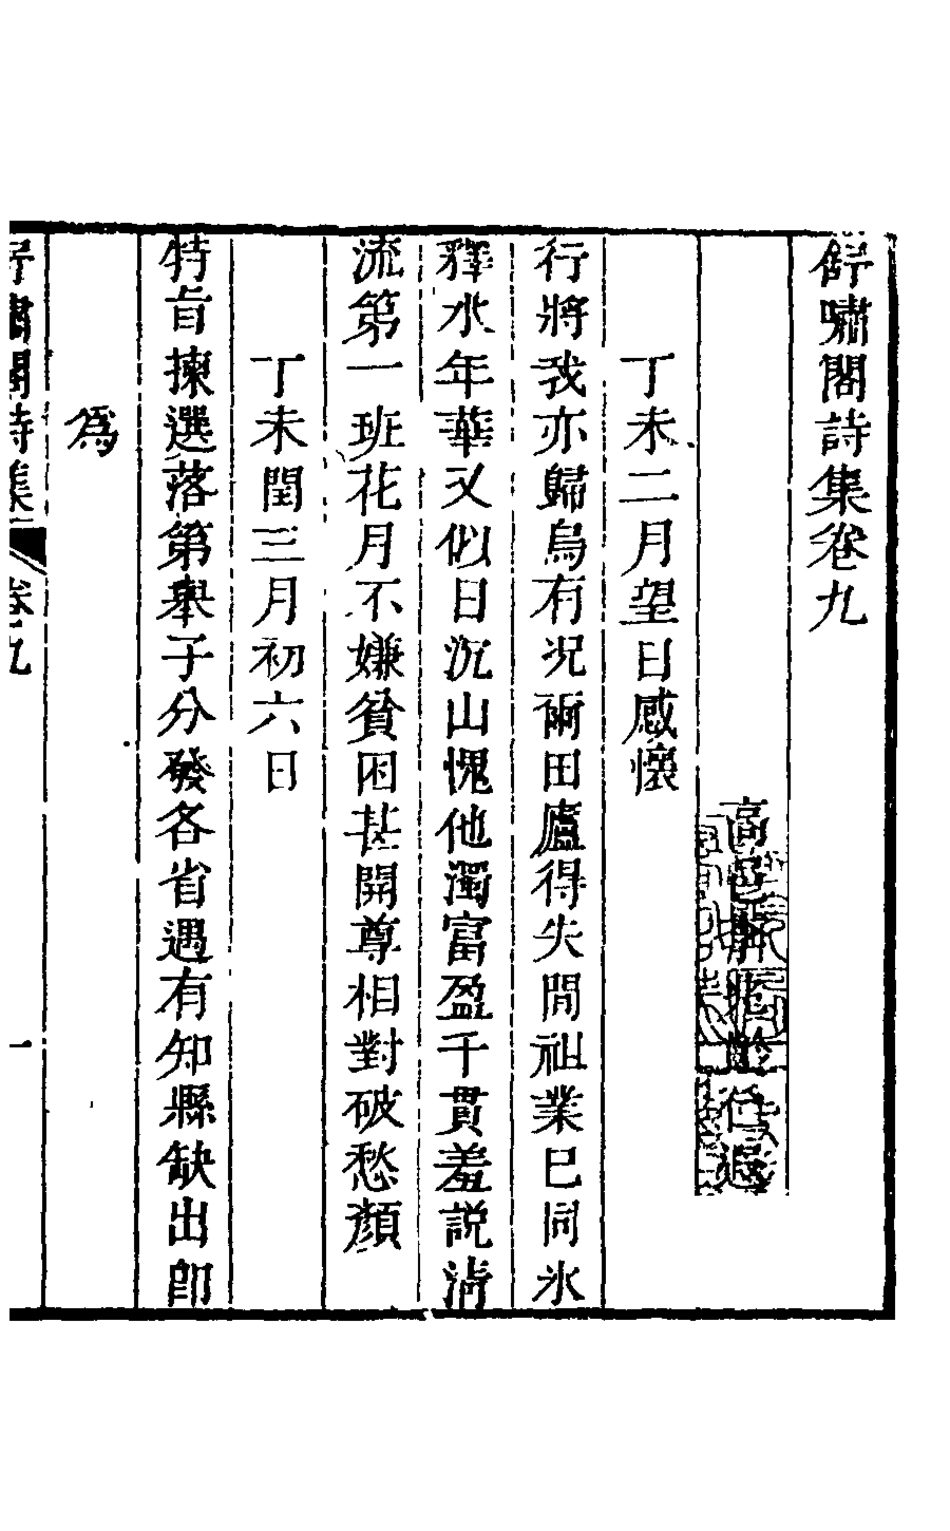 舒嘯閣詩集卷九
高邑 兆 仁遐
丁未二月望日感懷
行將我亦歸烏有况爾田廬得失間祖業已同氷
釋水年華又似日沉山愧他濁富盈千貫羞説清
流第一班花月不嫌貧困甚開尊相對破愁顏
丁未閏三月初六日
爲
特旨揀選落第舉子分發各省遇有知縣缺出卽
舒嘯閣詩集 卷九 一